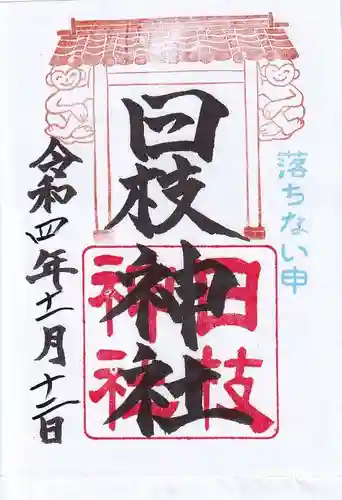 落ちない申
日枝神社
日枝神社
令和四年十一月十二日